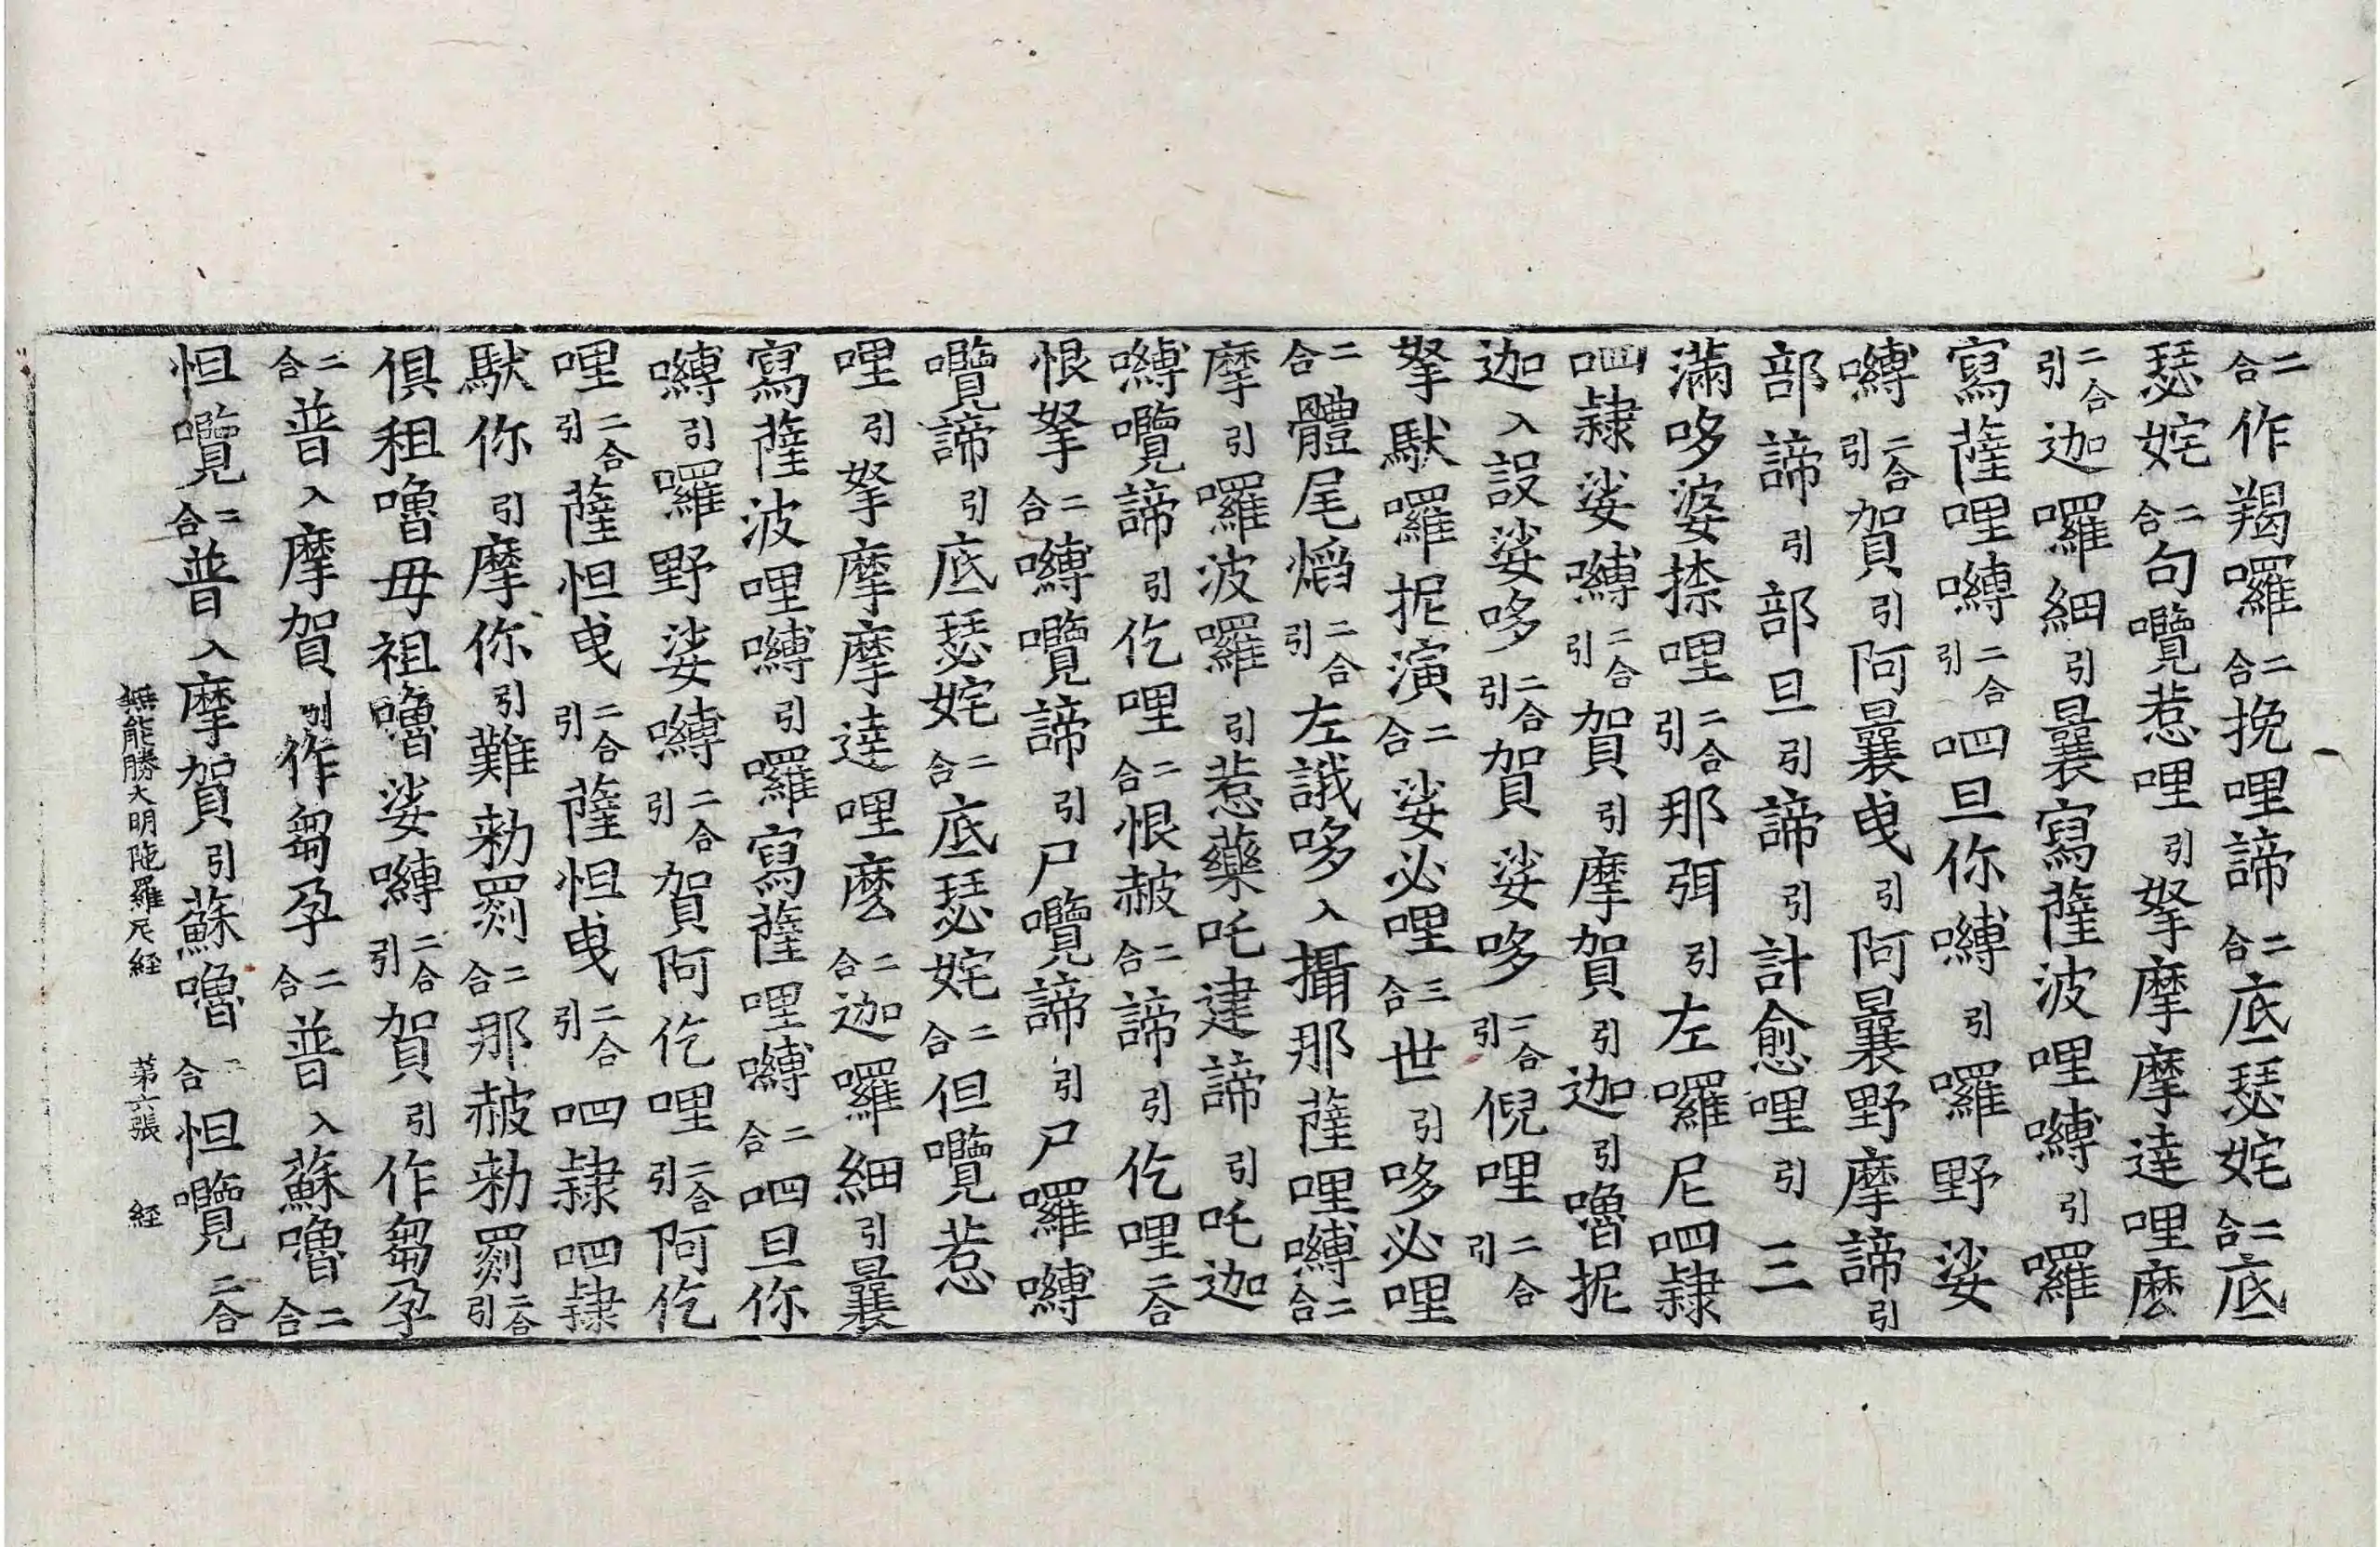 二合作羯囉二合挽哩諦二合底瑟姹二合底
瑟姹二合句囕惹哩引拏摩摩達哩麽
二合引迦囉細引曩寫薩波哩嚩引囉
寫薩哩嚩二合引呬旦你嚩引囉野娑
嚩二合引賀引阿曩曳引阿曩野摩諦引
部諦引部旦引諦引計愈哩引三
滿哆婆捺哩二合引那弭引左囉尼呬隸
呬隸娑嚩二合引賀引摩賀引迦引嚕抳
迦入設娑哆二合引賀娑哆二合引倪哩二合引
拏馱囉抳演二合娑必哩三合世引哆必哩
二合體尾焰二合引左誐哆入攝那薩哩嚩二合
摩引囉波囉引惹藥吒建諦引吒迦
嚩囕諦引仡哩二合恨赧二合諦引仡哩二合
恨拏二合嚩囕諦引尸囕諦引尸囉嚩
囕諦引底瑟姹二合底瑟姹二合但囕惹
哩引拏摩摩達哩麽二合迦囉細引曩
寫薩波哩嚩引囉寫薩哩嚩二合呬旦你
嚩引囉野娑嚩二合引賀阿仡哩二合引阿仡
哩二合引薩怛曳二合引薩怛曳二合引呬隸呬隸
馱你引摩你引難勑罽二合那赧勑罽二合引
俱租嚕毋祖嚕娑嚩二合引賀引作芻孕
二合普入摩賀引作芻孕二合普入蘇嚕二合
怛囕二合普入摩賀引蘇嚕二合怛囕二合
無能勝大明陁羅尼経　第六張　経